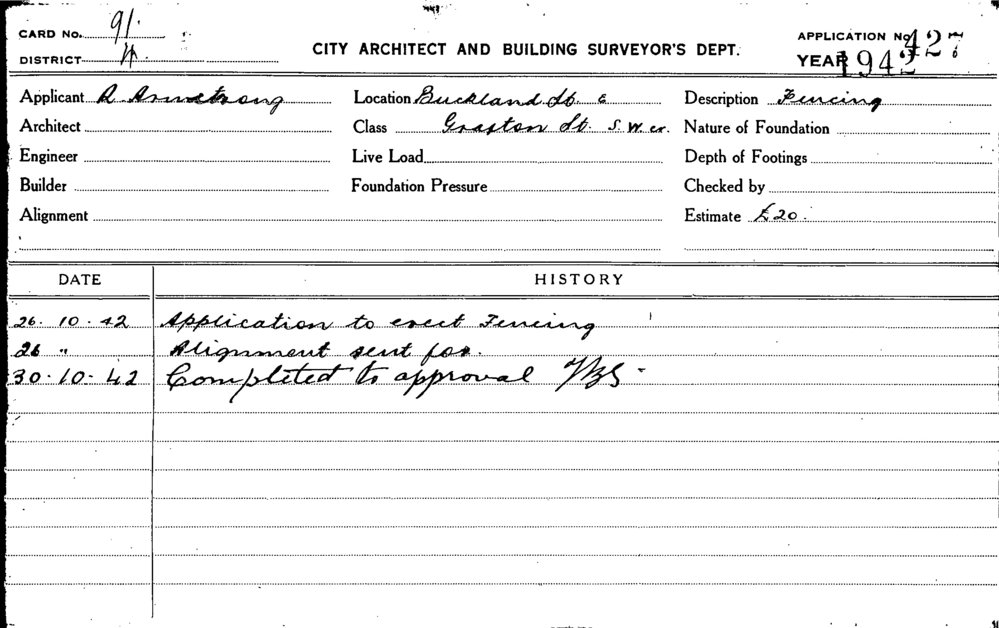 CARD No. 91.
DISTRICT
CITY ARCHITECT AND BUILDING SURVEYOR'S DEPT.
APPLICATION No. 427
YEAR 1942
Applicant R. Armstrong
Location Buckland St. E
Description Fencing
Architect
Class Grafton St. S.W. cr.
Nature of Foundation
Engineer
Live Load
Depth of Footings
Builder
Foundation Pressure
Checked by
Alignment
Estimate £20.
DATE
HISTORY
26.10.42 Application to erect Fencing
26 " Alignment sent for.
30-10-42 Completed to approval